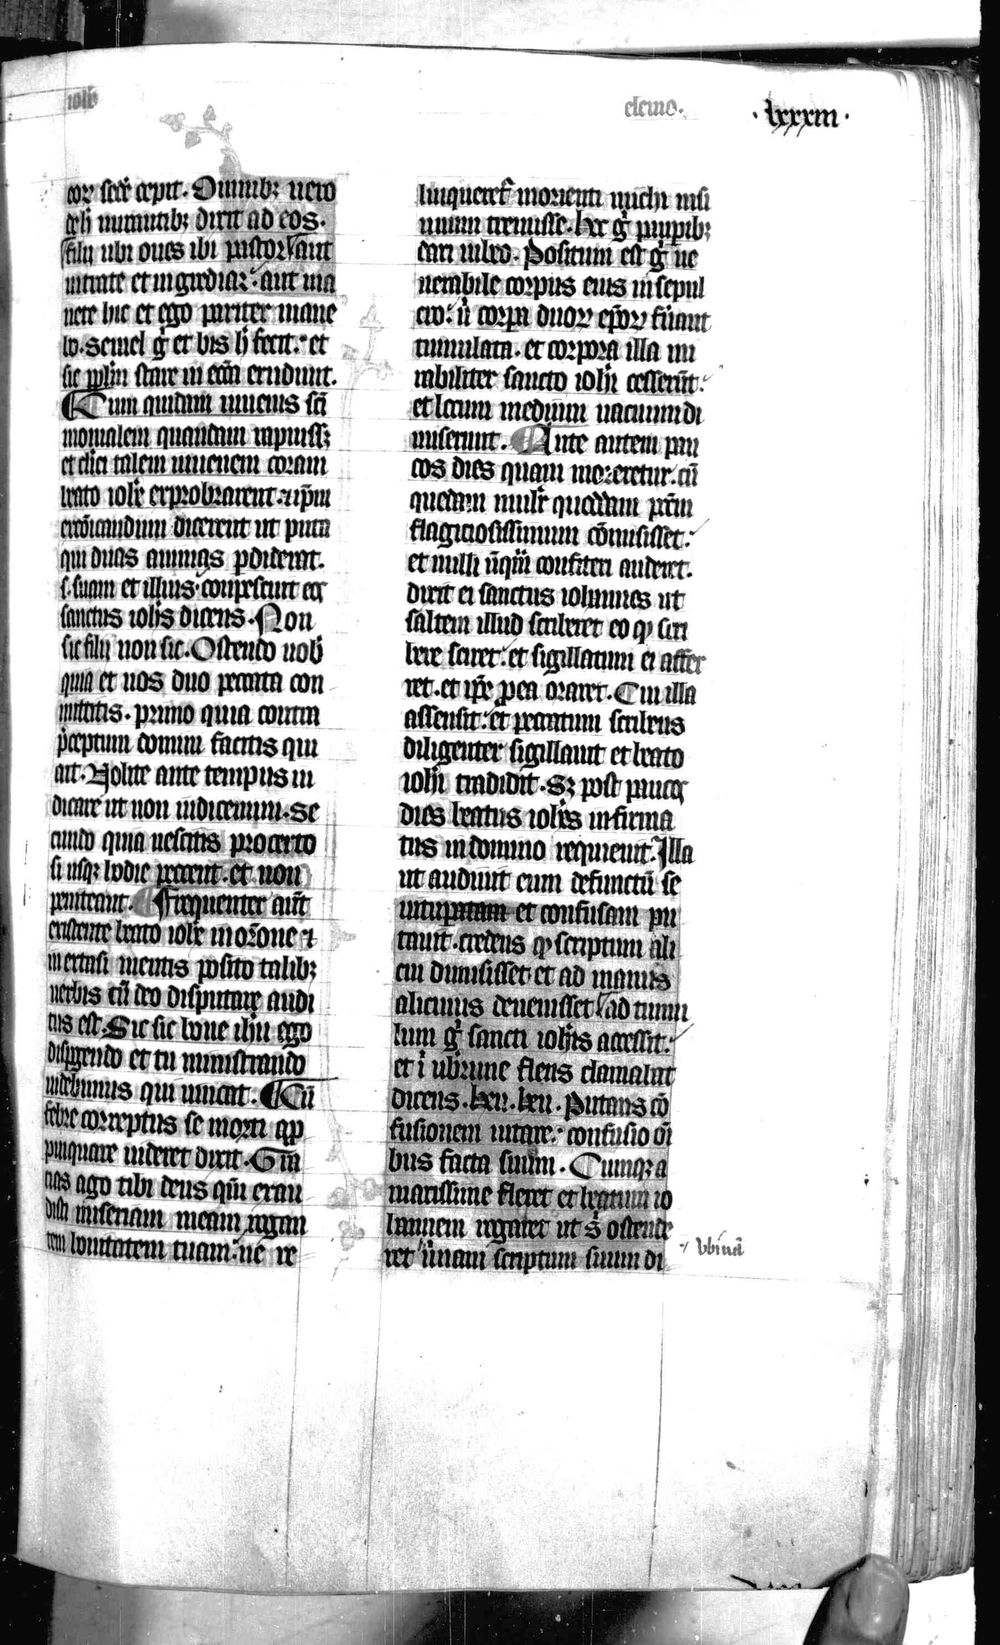 ioħs
elemo.
·lxxxiii·
coꝝ sede cepit. Omnibꝫ uero
de h̄ mirantibꝫ dixit ad eos.
filii ubi oues ibi pastor aut
intrate et ingrediar: aut ma
nete hic et ego pariter mane
bo. Semel g̊ et bis h̄ fecit: et
sic pplm stare in ecc̄a erudiuit.
Cum quidam iuuenis scī
monialem quandam rapuissꝫ
et clici talem iuuenem coram
beato ioh̄e exprobrarent: ip̄m
excōicandum dicerent ut puta
qui duas animas pdiderat.
s. suam et illius. compescuit eos
sanctus ioh̄s dicens. Non
sic filii non sic. Ostendo uob̄
quia et uos duo peccata con
mittitis. primo quia contra
p̄ceptum domini facitis qui
ait. Nolite ante tempus iu
dicare ut non iudicemini. Se
cundo quia nescitis pro certo
si usqꝫ hodie peccent. et non
peniteant. Frequenter aut̄
existente beato ioh̄e in or̄one ⁊
in extasi mentis posito talibꝫ
uerbis cū deo disputare audi
tus est. Sic sic bone ih̄u ego
dispgendo et tu ministrando
uidebimus qui uincat. Cū
febre correptus se morti app
pinquare uideret dixit. Gra
tias ago tibi deus qm̄ exau
disti miseriam meam rogan
tem bonitatem tuam: ne re
linqueret morienti michi nisi
unum tremisse. hec g̊ paupibꝫ
dari iubeo. Positum est g̊ ue
nerabile corpus eius in sepul
cro: ū corpa duoꝝ ep̄oꝝ fūant
tumulata. et corpora illa mi
rabiliter sancto ioh̄i cesserūt:
et locum medium uacuum di
miserunt. Ante autem pau
cos dies quam moreretur: cū
quedam mulier quoddam pctm
flagitiosissimum cōmisisset:
et nulli ūqm̄ confiteri auderet.
dixit ei sanctus iohannes ut
saltem illud scriberet eo ꝙ scri
bere sciret: et sigillatum ei affer
ret. et ip̄e p ea oraret. Cui illa
assensit: et peccatum scribens
diligenter sigillauit et beato
ioh̄i tradidit. Sꝫ post paucos
dies beatus ioh̄es infirma
tus in domino requieuit. Illa
ut audiuit eum defunctū se
uituperatam et confusam pu
tauit. credens ꝙ scriptum ali
cui dimisisset et ad manus
alicuius deuenisset ad tumu
lum g̊ sancti ioh̄is accessit:
et i ubrime flens clamabat
dicens. heu. heu. Putans cō
fusionem uitare: confusio oī
bus facta sum. Cumqꝫ a
marissime fleret et beatum io
hannem rogaret ut s̄ ostende
ret ūnam scriptum suum di